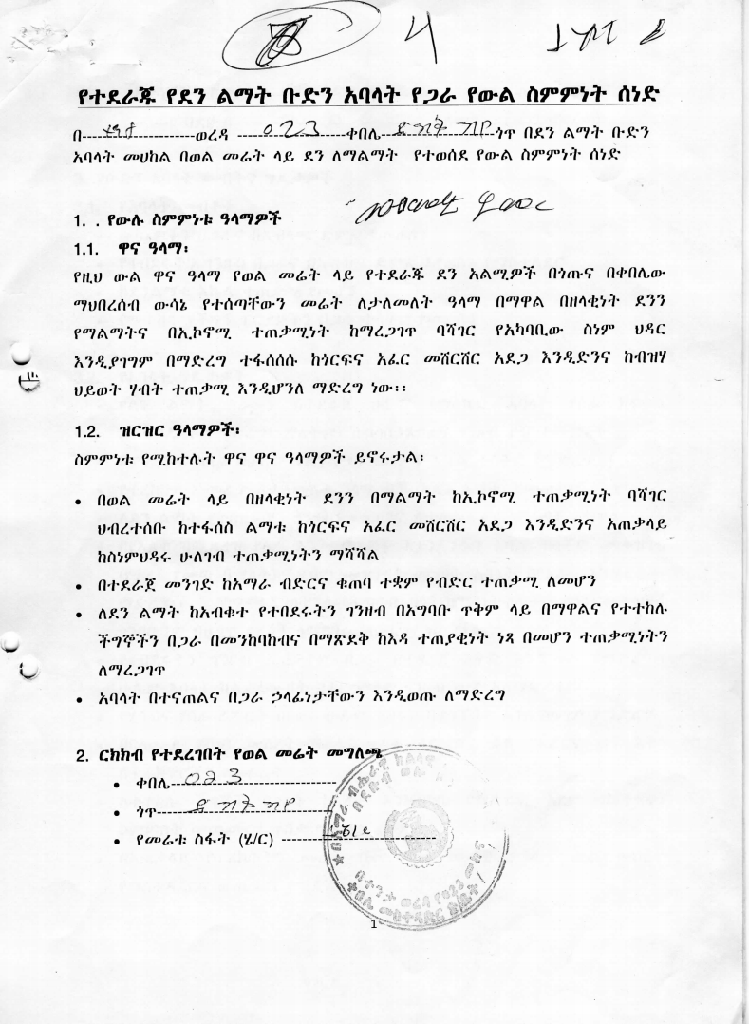 4
የተደራጁ የደን ልማት ቡድን አባላት የጋራ የውል ስምምነት ሰነድ
በ--------------------ወረዳ ---023---ቀበሌ--------------------ጎጥ በደን ልማት ቡድን
አባላት መህከል በወል መሬት ላይ ደን ለማልማት የተወሰደ የውል ስምምነት ሰነድ
1. . የውሉ ስምምነቱ ዓላማዎች
1.1. ዋና ዓላማ፡
የዚህ ውል ዋና ዓላማ የወል መሬት ላይ የተደራጁ ደን አልሚዎች በጎጡና በቀበሌው
ማህበረሰብ ውሳኔ የተሰጣቸውን መሬት ለታለመለት ዓላማ በማዋል በዘላቂነት ደንን
የማልማትና በኢኮኖሚ ተጠቃሚነት ከማረጋገጥ ባሻገር የአካባቢው ስነም ህዳር
እንዲያገግም በማድረግ ተፋሰሰሱ ከጎርፍና አፈር መሸርሸር አደጋ እንዲድንና ከብዝሃ
ህይወት ሃብት ተጠቃሚ እንዲሆንለ ማድረግ ነው፡፡
1.2. ዝርዝር ዓላማዎች፡
ስምምነቱ የሚከተሉት ዋና ዋና ዓላማዎች ይኖሩታል፡
• በወል መሬት ላይ በዘላቂነት ደንን በማልማት ከኢኮኖሚ ተጠቃሚነት ባሻገር
ህብረተሰቡ ከተፋሰስ ልማቱ ከጎርፍና አፈር መሸርሸር አደጋ እንዲድንና አጠቃላይ
ከስነምህዳሩ ሁለገብ ተጠቃሚነትን ማሻሻል
• በተደራጀ መንገድ ከአማራ ብድርና ቁጠባ ተቋም የብድር ተጠቃሚ ለመሆን
• ለደን ልማት ከአብቁተ የተበደሩትን ገንዘብ በአግባቡ ጥቅም ላይ በማዋልና የተተከሉ
ችግኞችን በጋራ በመንከባከብና በማጽደቅ ከእዳ ተጠያቂነት ነጻ በመሆን ተጠቃሚነትን
ለማረጋገጥ
• አባላት በተናጠልና በጋራ ኃላፊነታቸውን እንዲወጡ ለማድረግ
2. ርክክብ የተደረገበት የወል መሬት መግለጫ
• ቀበሌ---023--------------------
• ጎጥ--------------------
• የመሬቱ ስፋት (ሄ/ር) --------------------
1